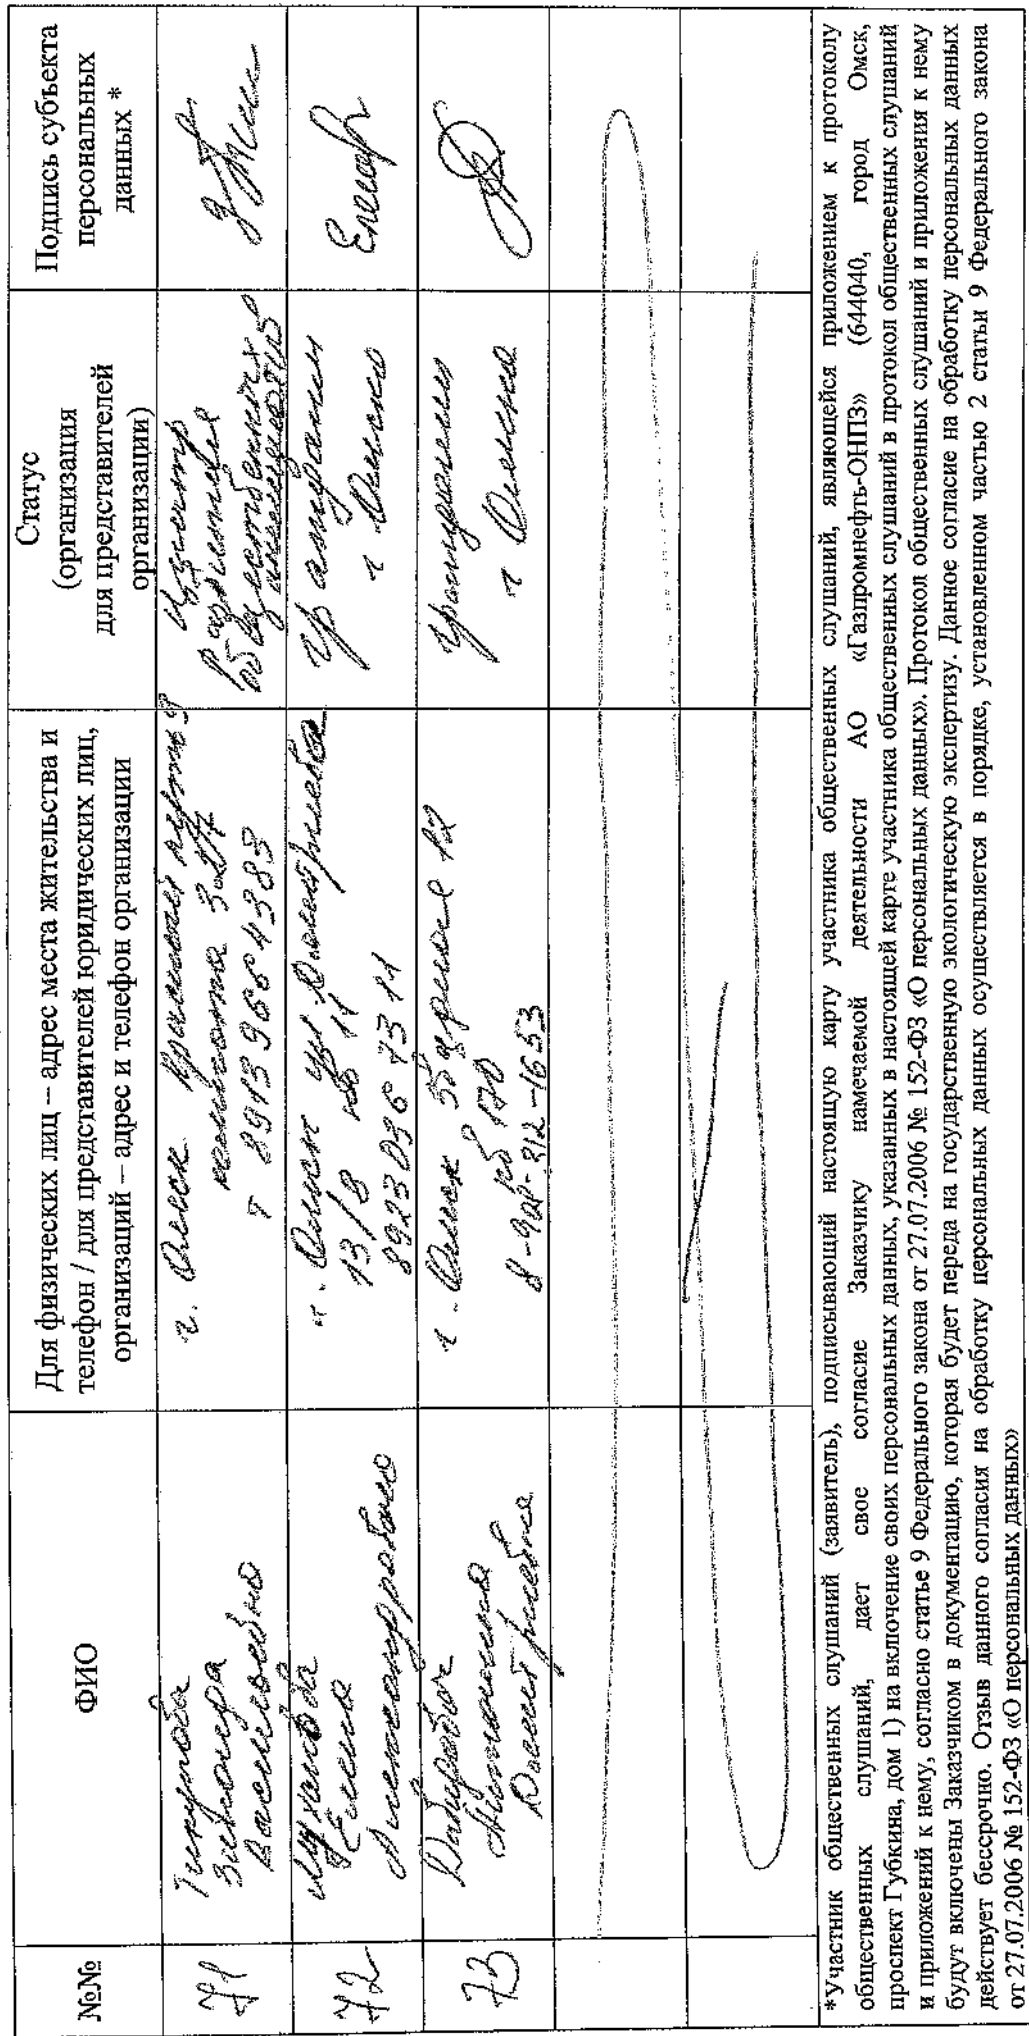 №№
ФИО
Для физических лиц – адрес места жительства и
телефон / для представителей юридических лиц,
организаций – адрес и телефон организации
Статус
(организация
для представителей
организации)
Подпись субъекта
персональных
данных *
71
Васильевна
г. Омск Красный путь 9
комната 3
т 8913966 4383
Центр
развития
общественных
72
Елена
Александровна
г. Омск ул Дмитриева
13/8 кв 11
8923 036 73 11
гр
г Омска
73
Дмитриевна
г. Омск
кв 170
г Омска
*Участник общественных слушаний (заявитель), подписывающий настоящую карту участника общественных слушаний, являющейся приложением к протоколу
общественных слушаний, дает свое согласие Заказчику намечаемой деятельности АО «Газпромнефть-ОНПЗ» (644040, город Омск,
проспект Губкина, дом 1) на включение своих персональных данных, указанных в настоящей карте участника общественных слушаний в протокол общественных слушаний
и приложений к нему, согласно статье 9 Федерального закона от 27.07.2006 № 152-ФЗ «О персональных данных». Протокол общественных слушаний и приложения к нему
будут включены Заказчиком в документацию, которая будет переда на государственную экологическую экспертизу. Данное согласие на обработку персональных данных
действует бессрочно. Отзыв данного согласия на обработку персональных данных осуществляется в порядке, установленном частью 2 статьи 9 Федерального закона
от 27.07.2006 № 152-ФЗ «О персональных данных»